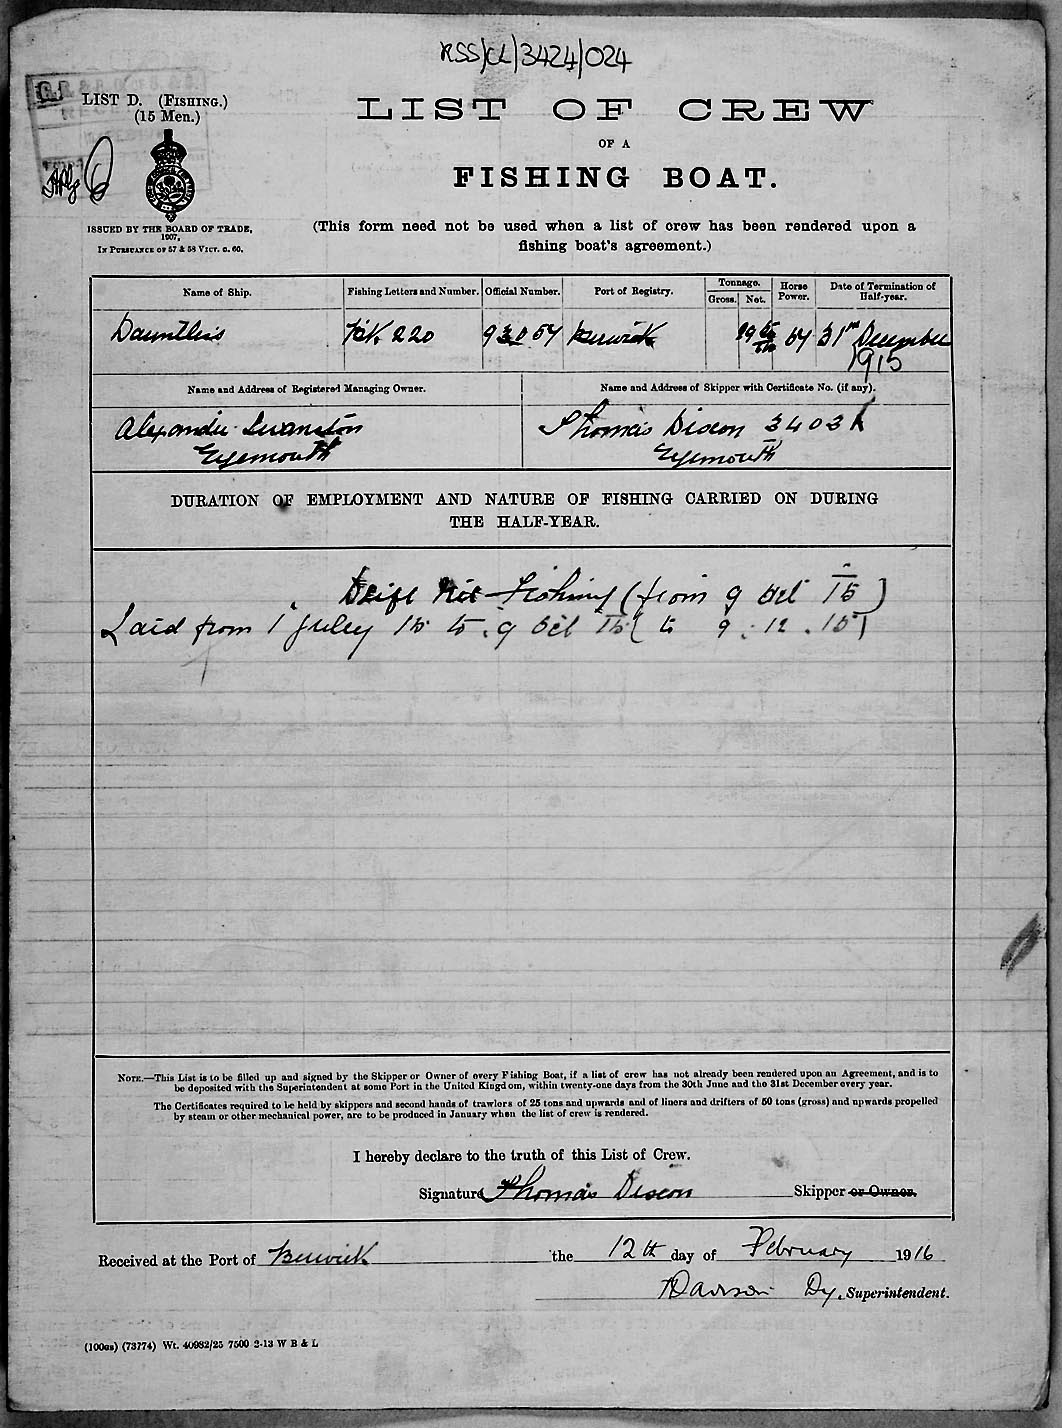 RSS/CL/3424/024
LIST D. (FISHING.)
(15 Men.)
LIST OF CREW
OF A
FISHING BOAT.
ISSUED BY THE BOARD OF TRADE,
1907,
IN PURSUANCE OF 57 & 58 VICT. C. 60.
(This form need not be used when a list of crew has been rendered upon a
fishing boat's agreement.)
Name of Ship. Fishing Letters and Number. Official Number. Port of Registry. Tonnage. Gross. Net. Horse Power. Date of Termination of Half-year.
Dauntless BK. 220 Berwick 19 64 31st December
1915
Name and Address of Registered Managing Owner. Name and Address of Skipper with Certificate No. (if any).
Alexander Swanston Thomas Discon
Eyemouth Eyemouth
DURATION OF EMPLOYMENT AND NATURE OF FISHING CARRIED ON DURING
THE HALF-YEAR.
Drift Net Fishing (from 9 Oct 15)
Laid from 1 July 15 to 9 Oct 15 ( to 9. 12. 15)
NOTE.—This List is to be filled up and signed by the Skipper or Owner of every Fishing Boat, if a list of crew has not already been rendered upon an Agreement, and is to
be deposited with the Superintendent at some Port in the United Kingdom, within twenty-one days from the 30th June and the 31st December every year.
The Certificates required to be held by skippers and second hands of trawlers of 25 tons and upwards and of liners and drifters of 50 tons (gross) and upwards propelled
by steam or other mechanical power, are to be produced in January when the list of crew is rendered.
I hereby declare to the truth of this List of Crew.
Signature Thomas Discon Skipper or Owner.
Received at the Port of Berwick the 12th day of February 1916
Dawson Dy. Superintendent.
(100as) (73774) Wt. 40982/25 7500 2-13 W B & L